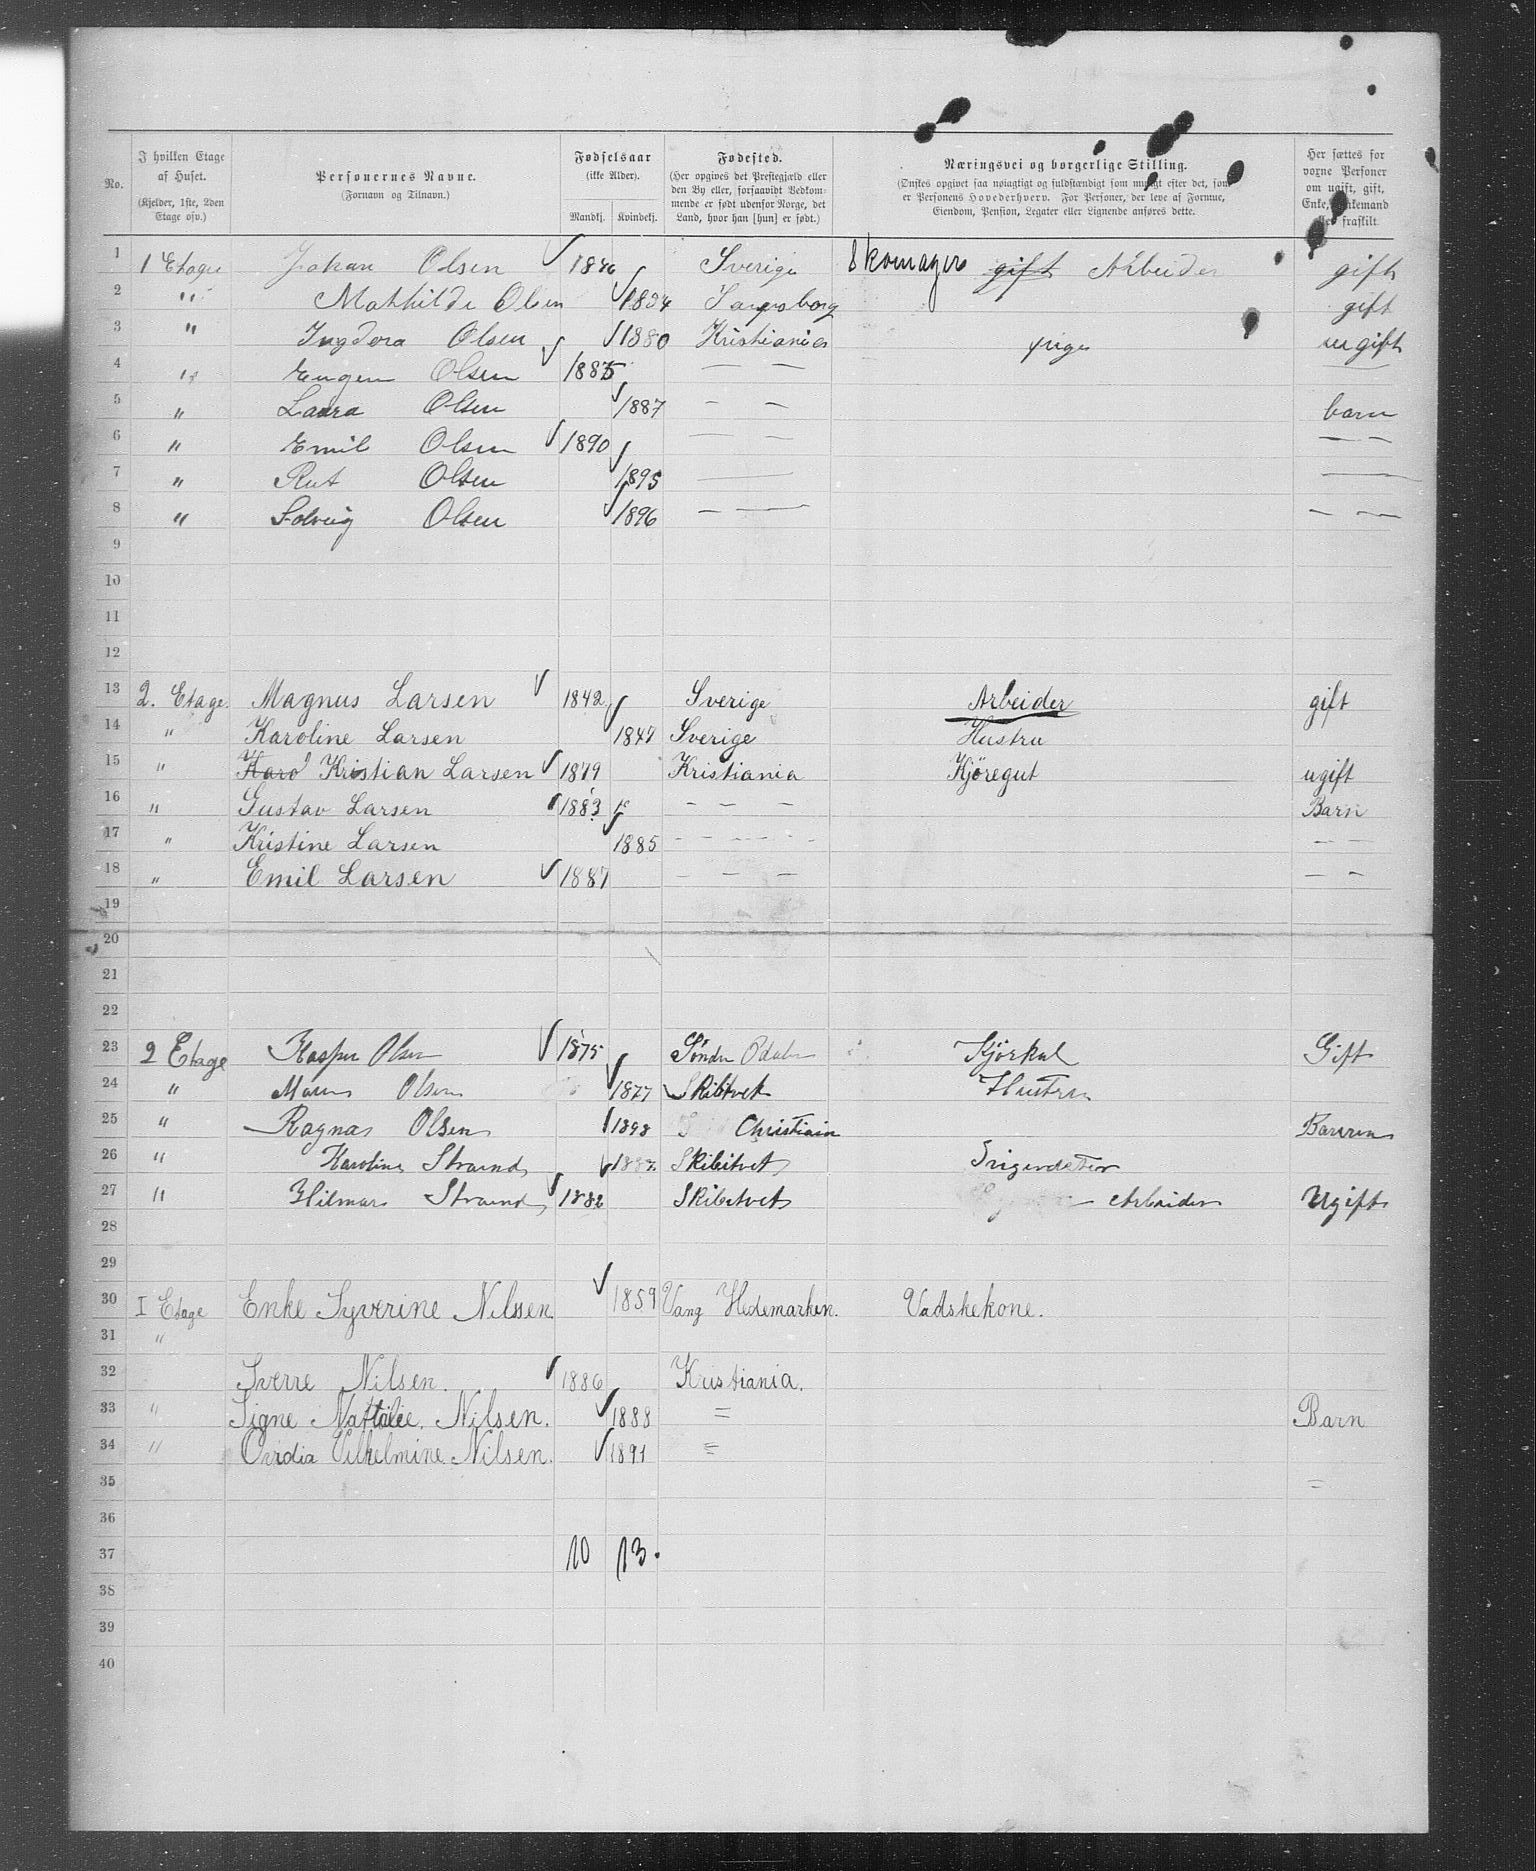 No. I hvilken Etage af Huset. (Kjelder, 1ste, 2den Etage osv.) Personernes Navne. (Fornavn og Tilnavn.) Fødselsaar (ikke Alder). Mandkj. Kvindekj. Fødested. (Her opgives det Prestegjæld eller den By eller, forsaavidt Vedkommende er født udenfor Norge, det Land, hvor han [hun] er født.) Næringsvei og borgerlige Stilling. (Ønskes opgivet saa nøiagtigt og fuldstændigt som muligt efter det, som er Personens Hovederhverv. For Personer, der leve af Formue, Eiendom, Pension, Legater eller Lignende anføres dette. Her sættes for voxne Personer om ugift, gift, Enke, Enkemand eller fraskilt.
1 1 Etage Johan Olsen Sverige Skomager gift Arbeider gift
2 " Mathilde Olsen Sarpsborg gift
3 " Ingdora Olsen 1880 Kristiania pige ugift
4 " Eugen Olsen 1885 — — —
5 " Laura Olsen 1887 — — barn
6 " Emil Olsen 1890 — — — —
7 " Rut Olsen 1895 — —
8 " Solveig Olsen 1896 — — — —
9
10
11
12
13 2. Etage Magnus Larsen 1842 Sverige Arbeider gift
14 " Karoline Larsen 1847 Sverige Hustru
15 " Karo Kristian Larsen 1879 Kristiania Kjøregut ugift
16 " Gustav Larsen 1883 — — — Barn
17 " Kristine Larsen 1885 — — — — —
18 " Emil Larsen 1887 — — — — —
19
20
21
22
23 2 Etage Kasper Olsen 1875 Søndre Odalen Kjørkal Gift
24 " Olsen 1877 Skibtvet Hustru
25 " Ragna Olsen 1898 Christiain Barn
26 " Karoline Strand Skibitvet
27 " Hilmar Strand 1882 Skibitvet Arbeider Ugift
28
29
30 I Etage Enke Syverine Nilssen. 1859 Vang Hedemarken. Vadskekone.
31 "
32 Sverre Nilsen. 1886 Kristiania.
33 " Signe Nattalie. Nilsen. 1888 = Barn
34 " Ovidia Vilhelmine Nilsen. 1891 =
35 =
36
37 10 13.
38
39
40